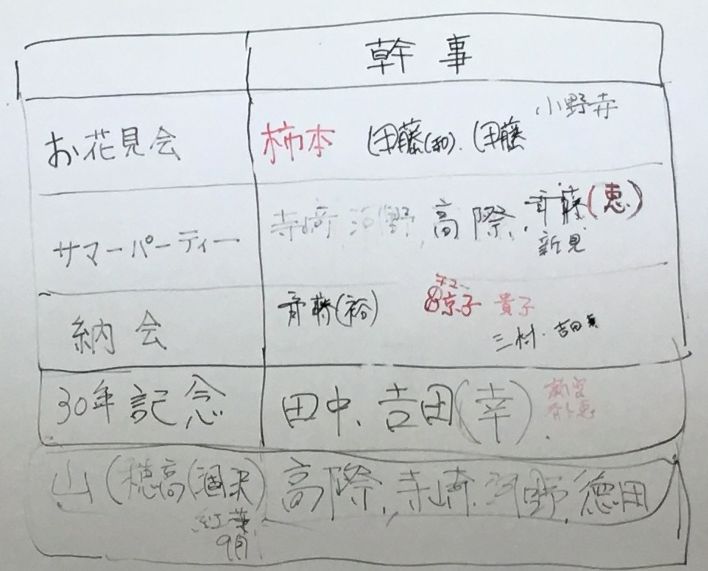 幹事
お花見会 柿本 伊藤(和). 伊藤 小野寺
サマーパーティー 寺崎 河野, 高際, 斉藤(恵)
新見
納会 斉藤(裕) 京子 貴子
三村. 吉田
30年記念 田中、吉田(幸)
山(穂高(涸沢) 高際, 寺崎, 河野, 徳田
紅葉
9月